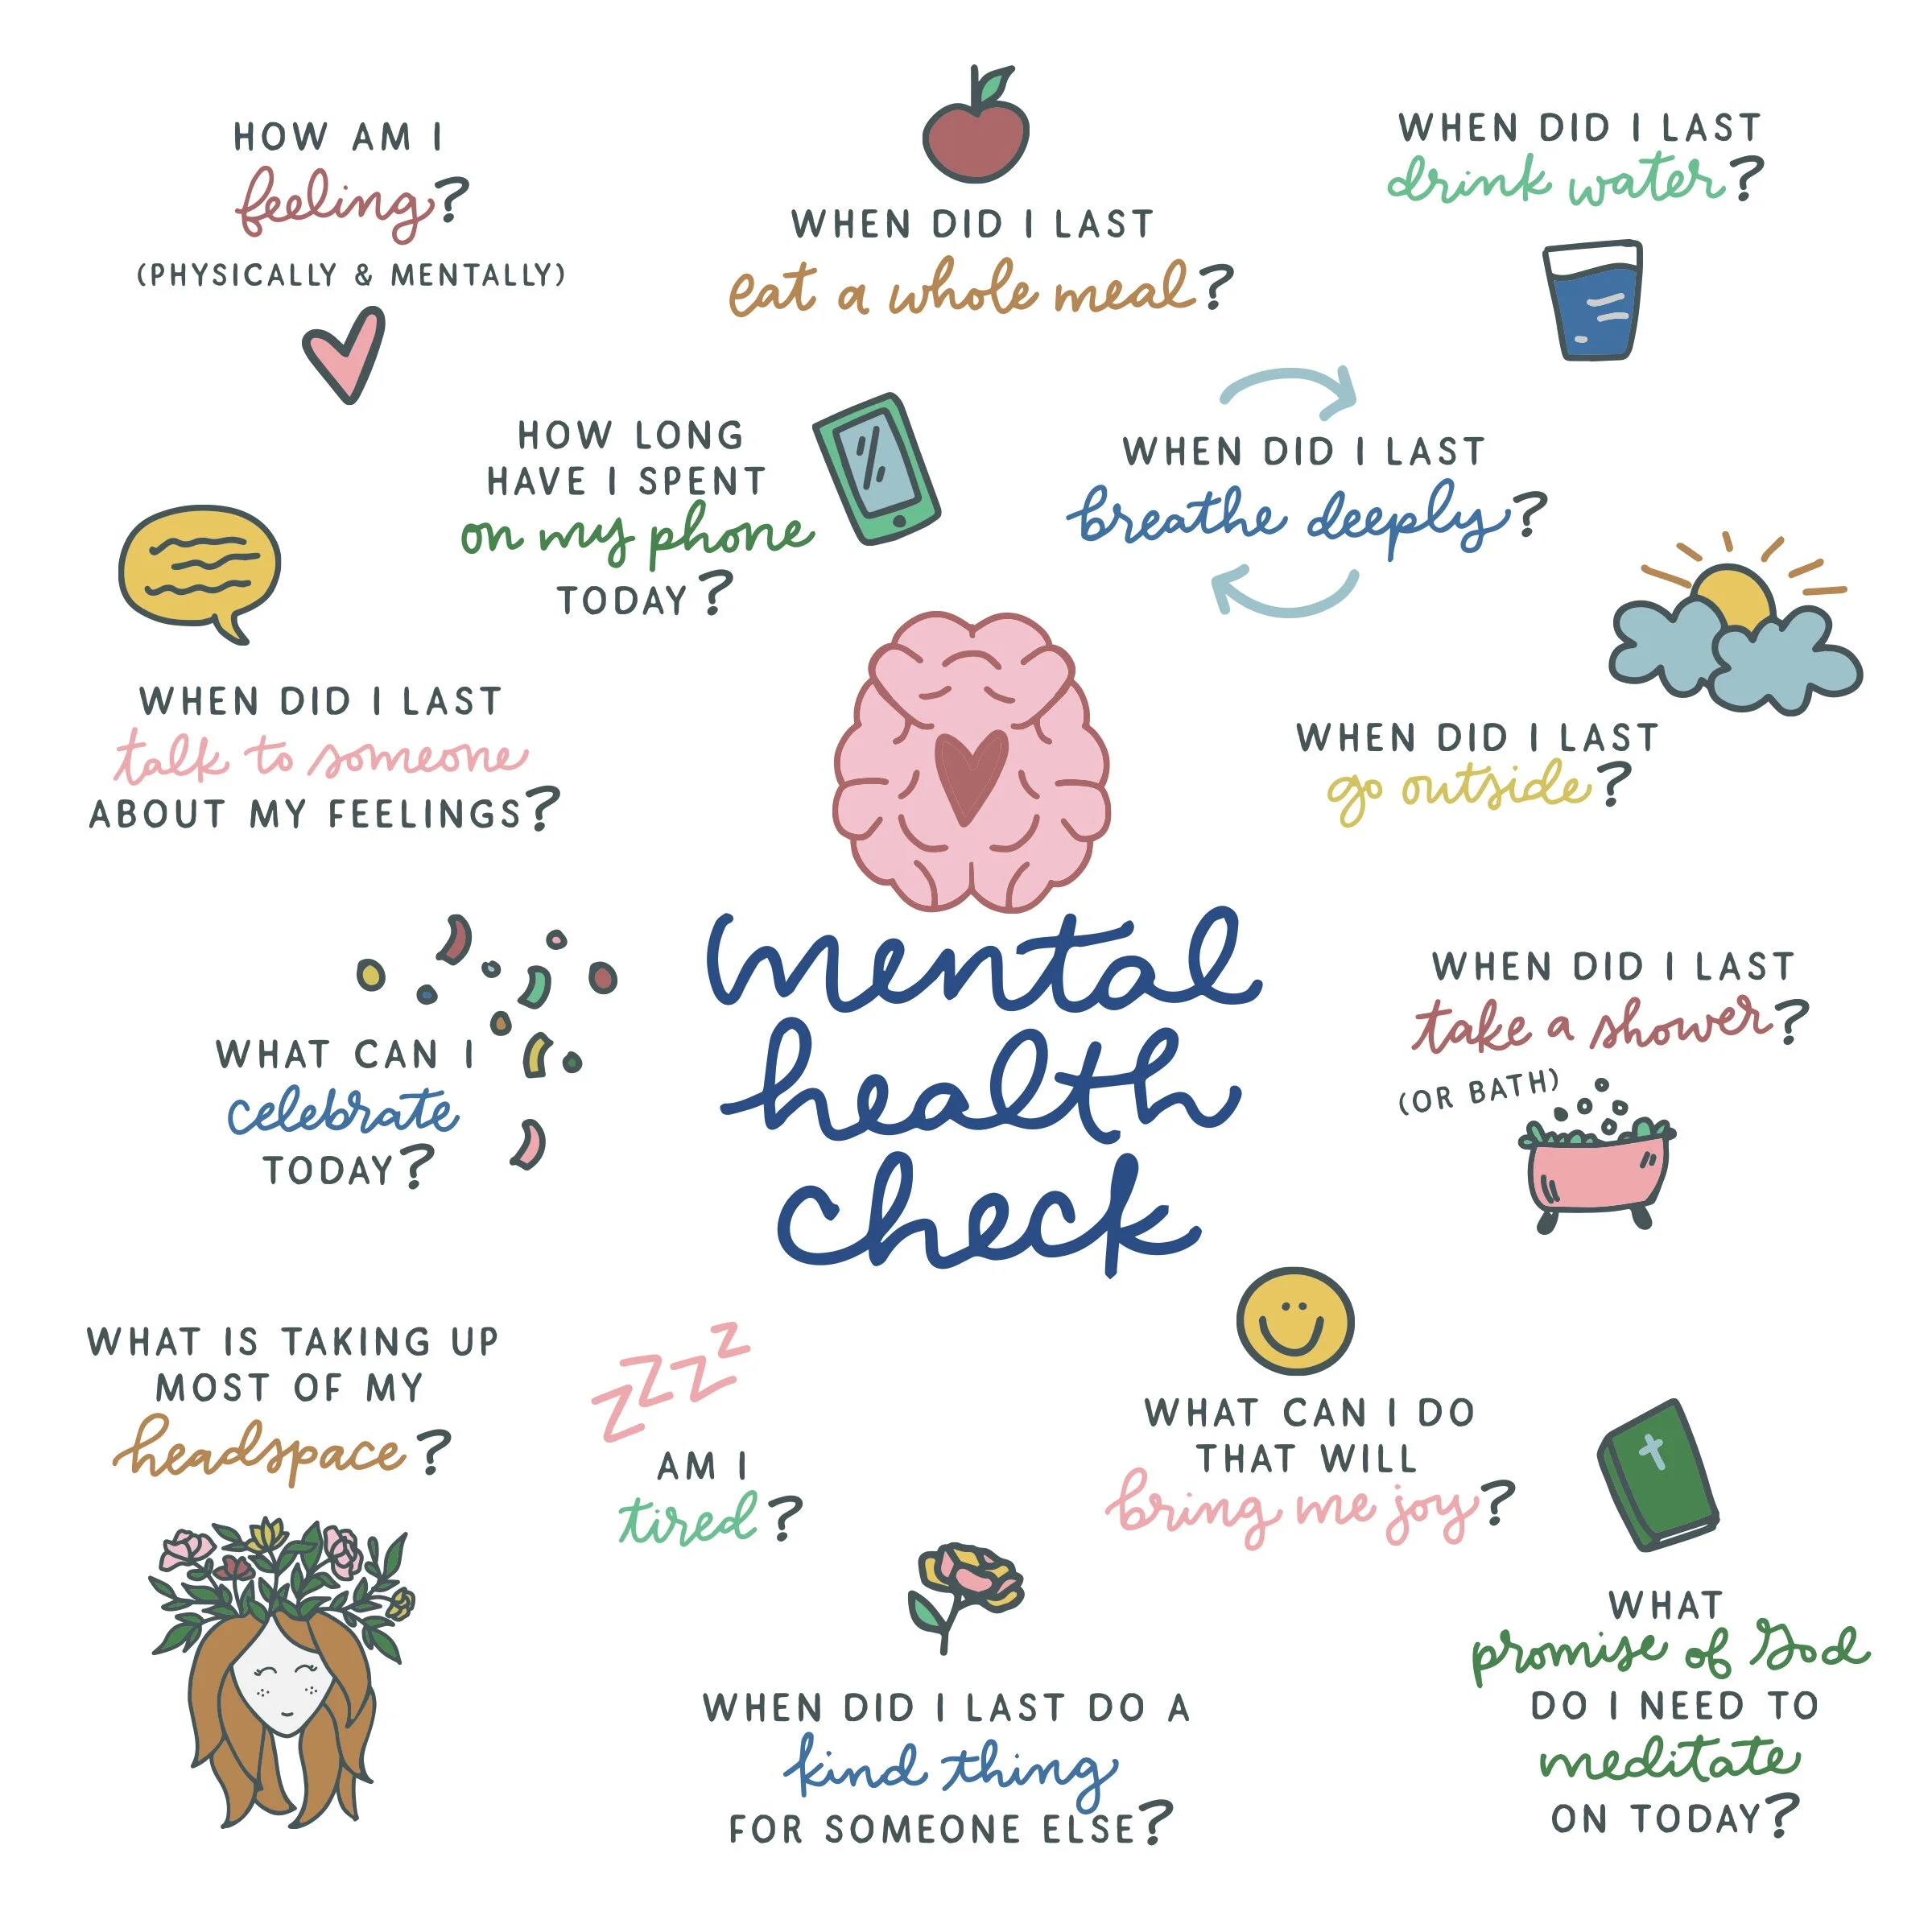 HOW AM I
feeling?
(PHYSICALLY & MENTALLY)
WHEN DID I LAST
eat a whole meal?
WHEN DID I LAST
drink water?
HOW LONG
HAVE I SPENT
on my phone
TODAY?
WHEN DID I LAST
breathe deeply?
WHEN DID I LAST
talk to someone
ABOUT MY FEELINGS?
WHEN DID I LAST
go outside?
mental
health
check
WHAT CAN I
celebrate
TODAY?
WHEN DID I LAST
take a shower?
(OR BATH)
WHAT IS TAKING UP
MOST OF MY
headspace?
zzzz
AM I
tired?
WHAT CAN I DO
THAT WILL
bring me joy?
WHEN DID I LAST DO A
kind thing
FOR SOMEONE ELSE?
WHAT
promise of God
DO I NEED TO
meditate
ON TODAY?